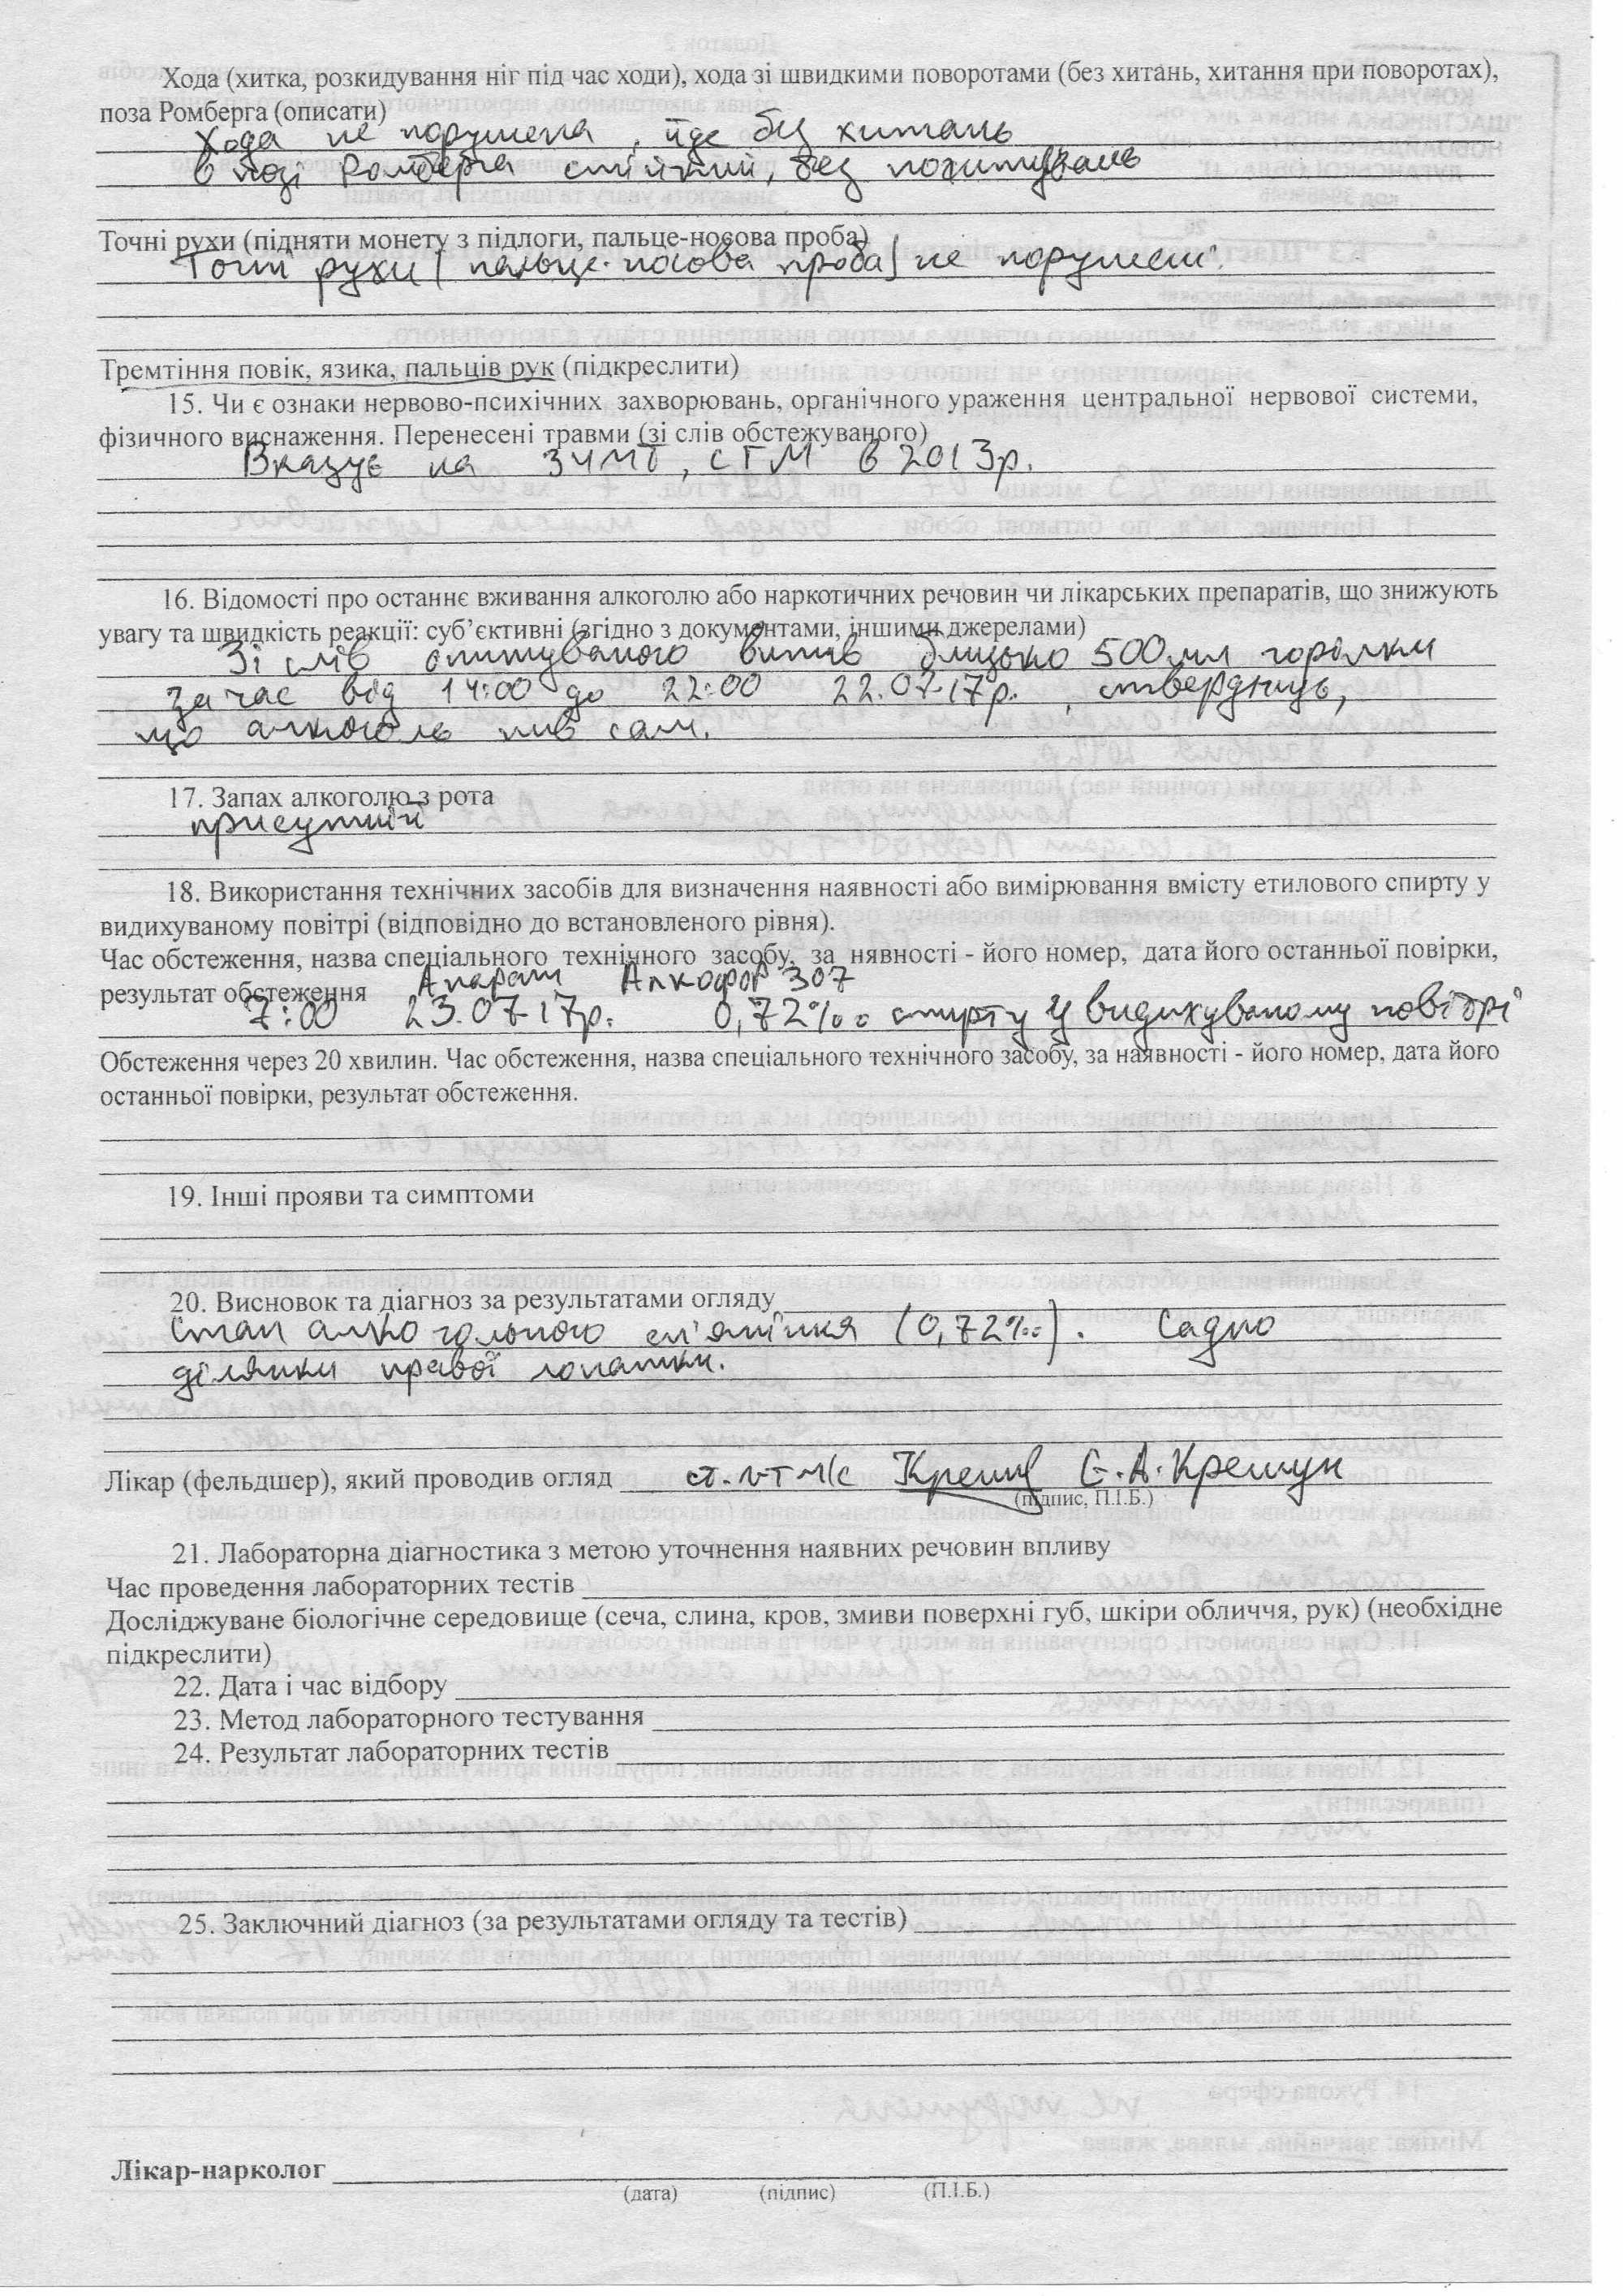 Хода (хитка, розкидування ніг під час ходи), хода зі швидкими поворотами (без хитань, хитання при поворотах),
поза Ромберга (описати)
Хода не порушена, йде без хитань
в позі Ромберга стійкий, без похитувань
Точні рухи (підняти монету з підлоги, пальце-носова проба)
Точні рухи (пальце-носова проба) не порушені
Тремтіння повік, язика, пальців рук (підкреслити)
15. Чи є ознаки нервово-психічних захворювань, органічного ураження центральної нервової системи,
фізичного виснаження. Перенесені травми (зі слів обстежуваного)
Вказує на ЗЧМТ, СГМ в 2013р.
16. Відомості про останнє вживання алкоголю або наркотичних речовин чи лікарських препаратів, що знижують
увагу та швидкість реакції: суб’єктивні (згідно з документами, іншими джерелами)
Зі слів опитуваного випив близько 500мл горілки
за час від 14:00 до 22:00 22.07.17р., стверджує,
що алкоголь пив сам.
17. Запах алкоголю з рота
присутній
18. Використання технічних засобів для визначення наявності або вимірювання вмісту етилового спирту у
видихуваному повітрі (відповідно до встановленого рівня).
Час обстеження, назва спеціального технічного засобу, за нявності - його номер, дата його останньої повірки,
результат обстеження Апарат Алкофор 307
7:00 23.07.17р. 0,72‰ спирту у видихуваному повітрі
Обстеження через 20 хвилин. Час обстеження, назва спеціального технічного засобу, за наявності - його номер, дата його
останньої повірки, результат обстеження.
19. Інші прояви та симптоми
20. Висновок та діагноз за результатами огляду
Стан алкогольного сп'яніння (0,72‰). Садно
ділянки правої лопатки.
Лікар (фельдшер), який проводив огляд ст. л-т м/с С.А.Крешук
(підпис, П.І.Б.)
21. Лабораторна діагностика з метою уточнення наявних речовин впливу
Час проведення лабораторних тестів
Досліджуване біологічне середовище (сеча, слина, кров, змиви поверхні губ, шкіри обличчя, рук) (необхідне
підкреслити)
22. Дата і час відбору
23. Метод лабораторного тестування
24. Результат лабораторних тестів
25. Заключний діагноз (за результатами огляду та тестів)
Лікар-нарколог
(дата) (підпис) (П.І.Б.)